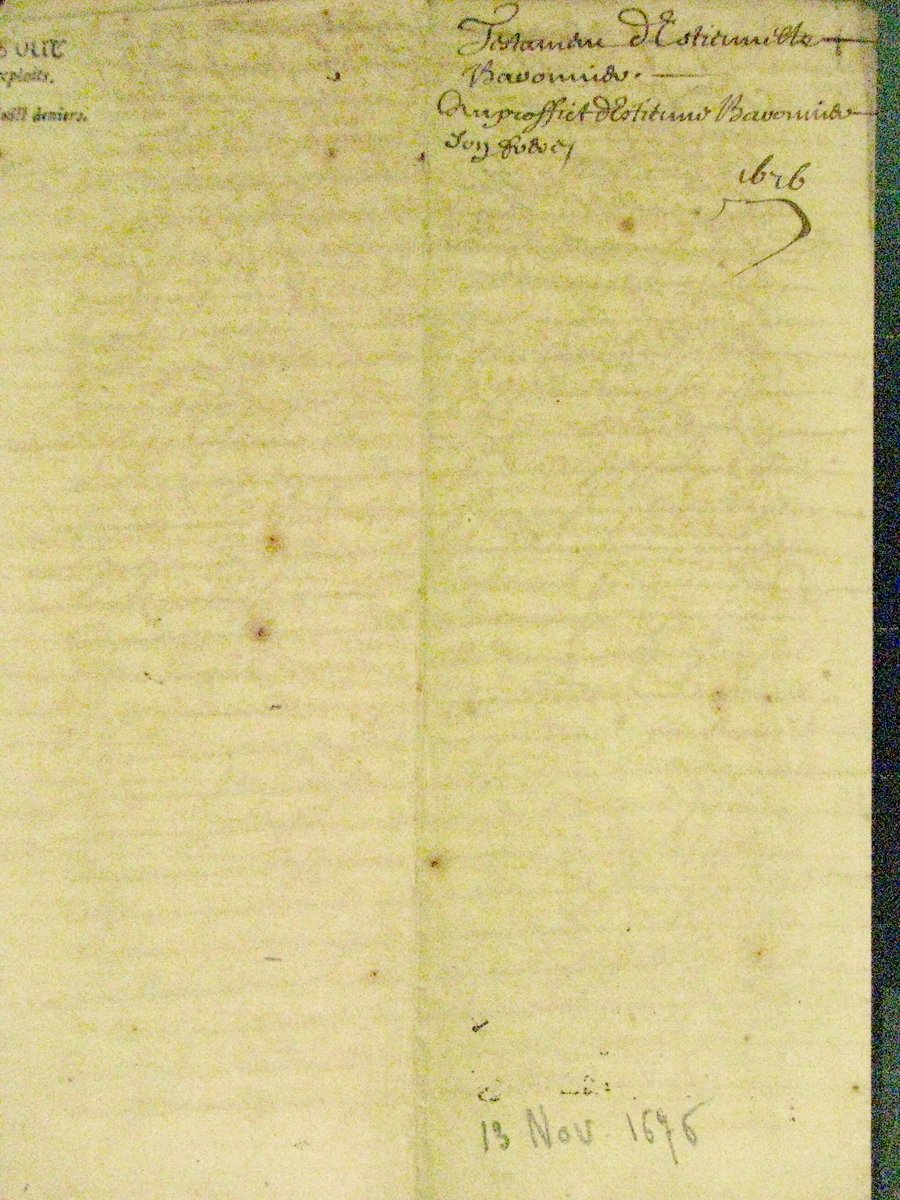 xploits.
deniers.
Testament d'Estiennette
Baronnier.
Au proffict d'Estienne Baronnier
son frere
1676
13 Nov. 1676